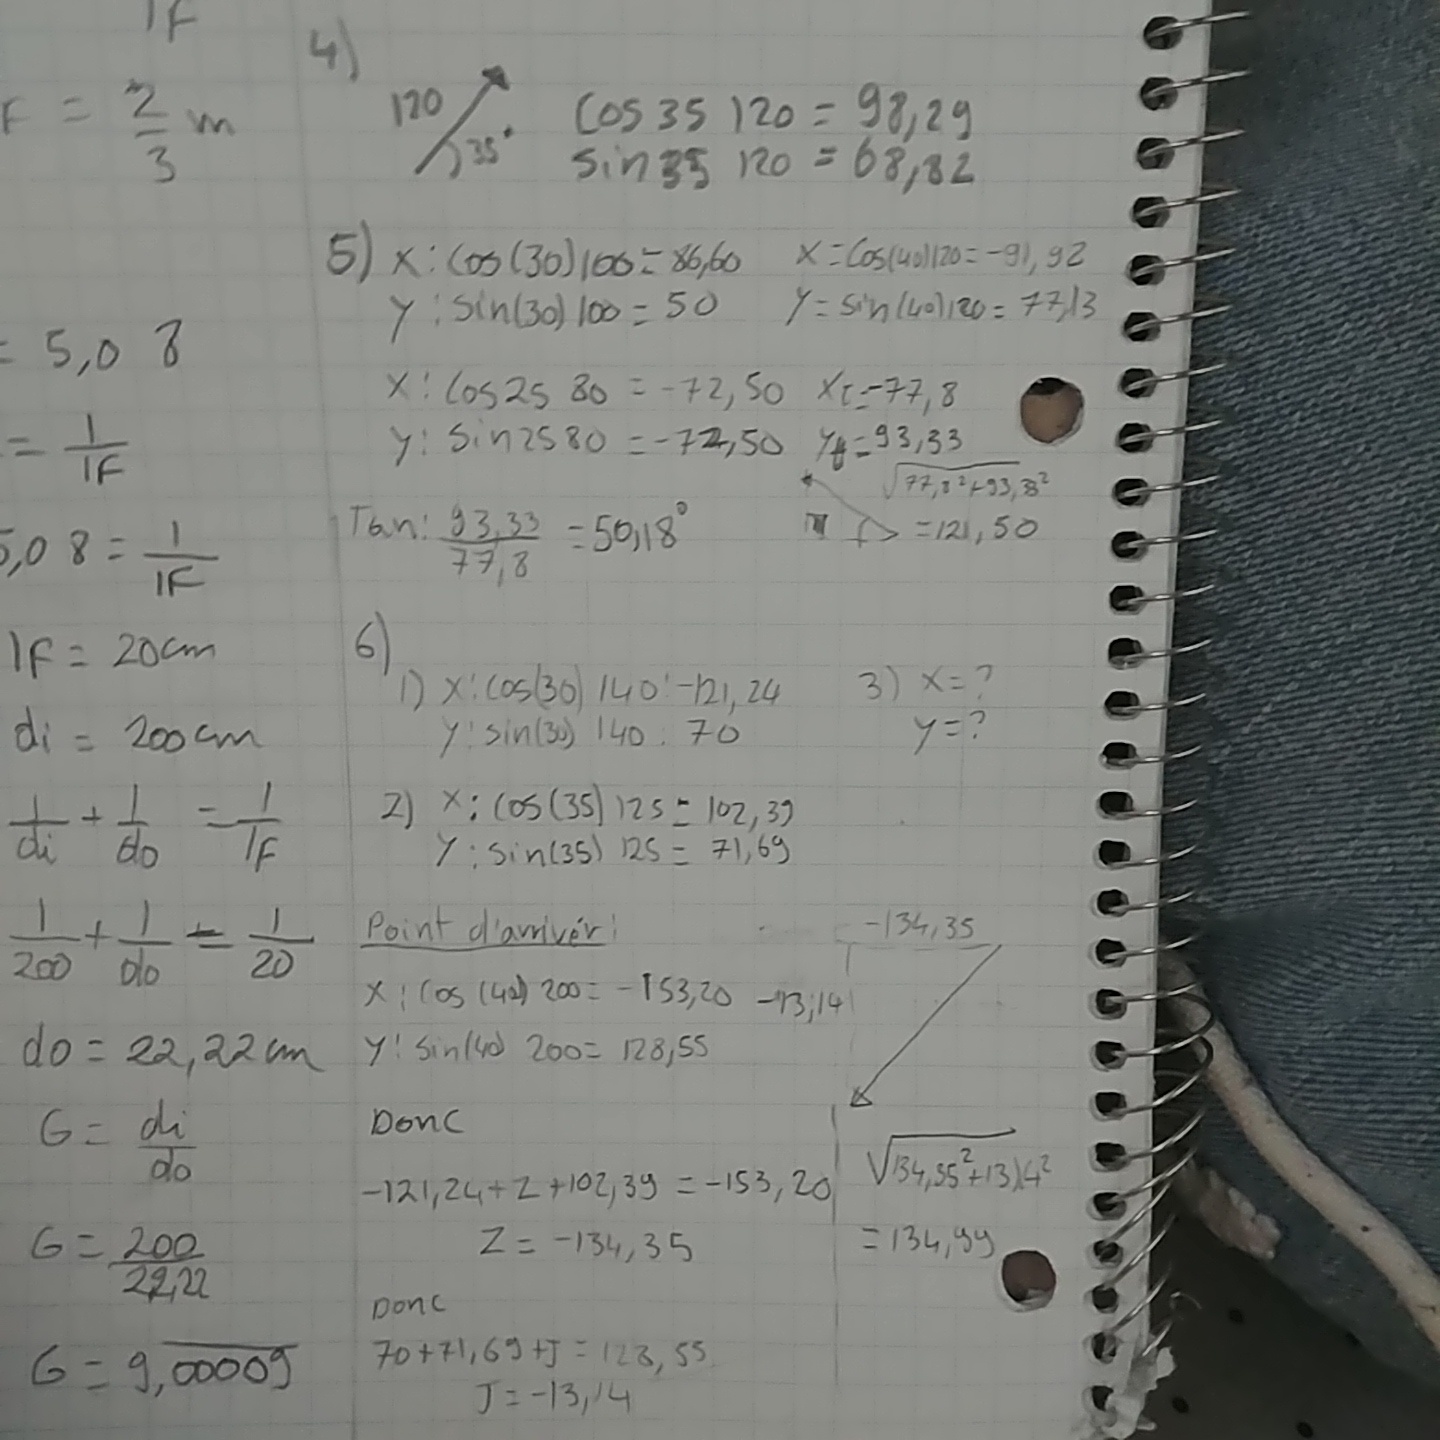 1F
F = 2/3 m
= 5,08
= 1/1F
5,08 = 1/1F
1F = 20cm
di = 200cm
1/di + 1/do = 1/1F
1/200 + 1/do = 1/20
do = 22,22cm
G = di/do
G = 200/22,22
G = 9,00009
4)
120 35°
Cos 35 120 = 98,29
sin 35 120 = 68,82
5) X : Cos(30) 100 = 86,60
Y : Sin(30) 100 = 50
X = Cos(40) 120 = -91,92
Y = Sin(40) 120 = 77,13
X : Cos25 80 = -72,50
Y : Sin25 80 = -72,50
Xt = -77,8
Yt = 93,33
√77,8²+93,33²
= 121,50
Tan : 93,33/77,8 = 50,18°
6)
1) X : Cos(30) 140 : -121,24
Y : sin(30) 140 : 70
2) X : Cos(35) 125 = 102,39
Y : Sin(35) 125 = 71,69
3) X = ?
Y = ?
Point d'arrivér :
X : Cos (40) 200 = -153,20
Y : Sin(40) 200 = 128,55
-134,35
-13,14
Donc
-121,24 + Z + 102,39 = -153,20
Z = -134,35
Donc
70 + 71,69 + J = 128,55
J = -13,14
√134,35² + 13,14²
= 134,99